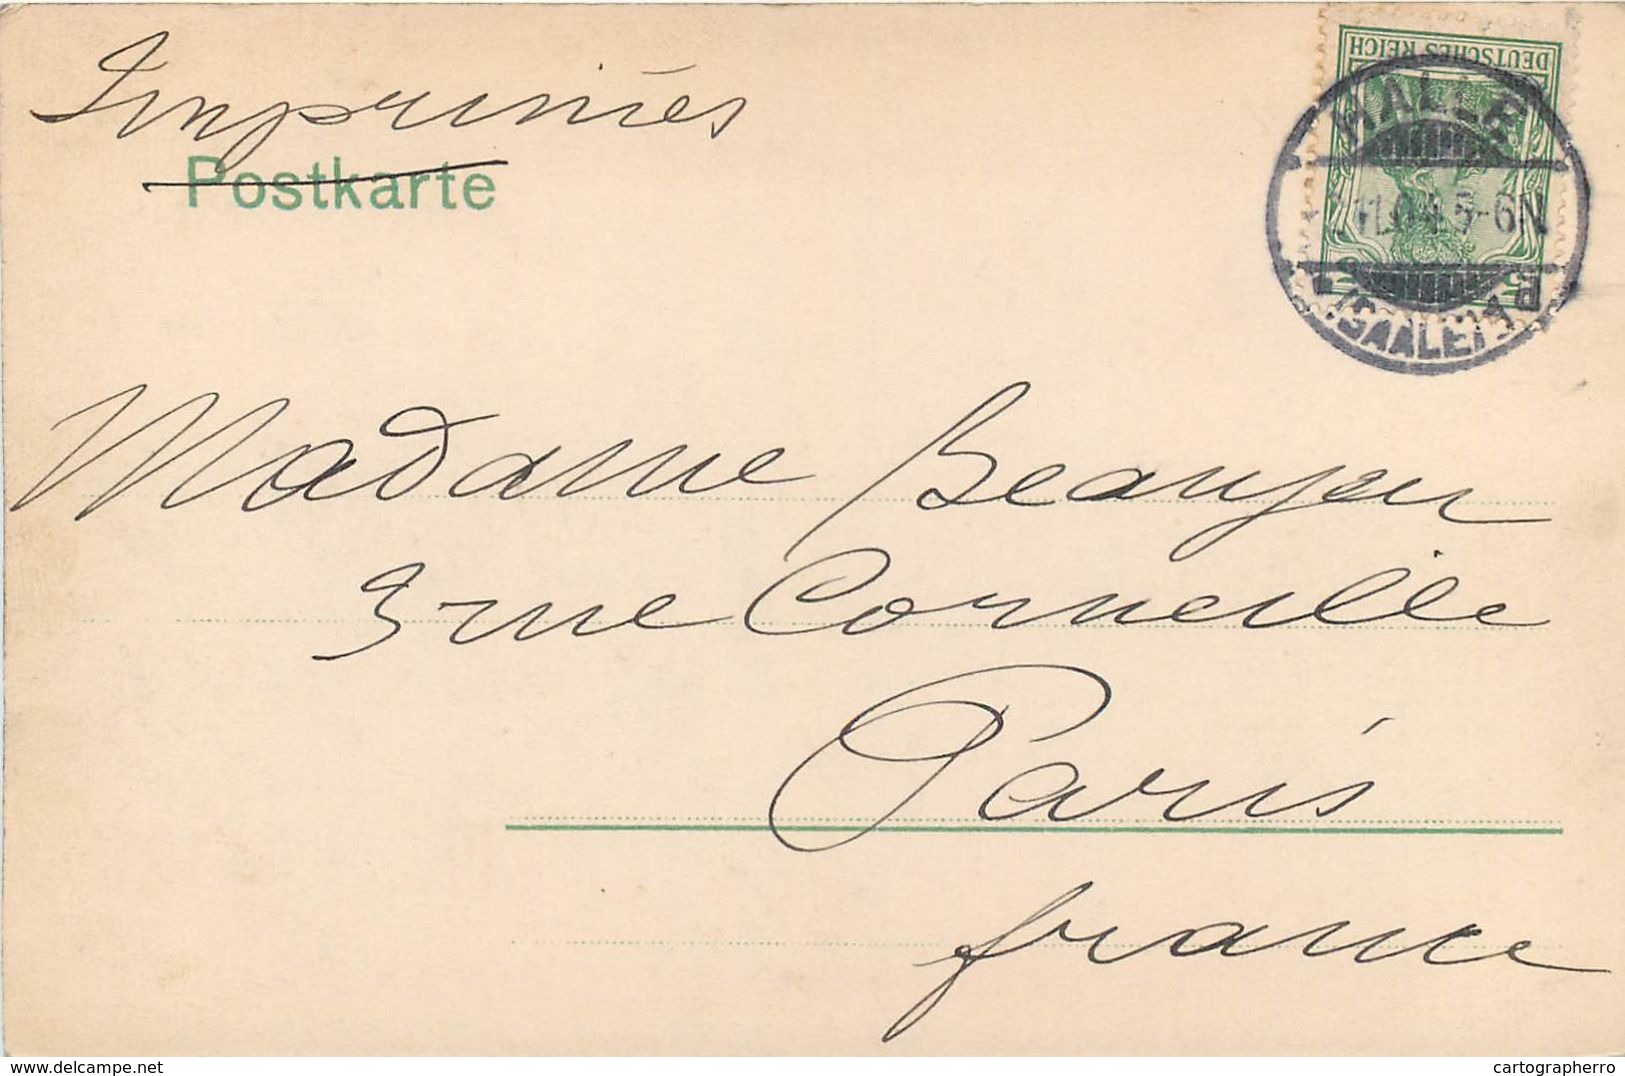 Imprimés
Postkarte
DEUTSCHES REICH
HALLE
11.04.5-6N
(SAALE)
Madame Beaujeu
3 rue Corneille
Paris
france
delcampe.net
cartographerro